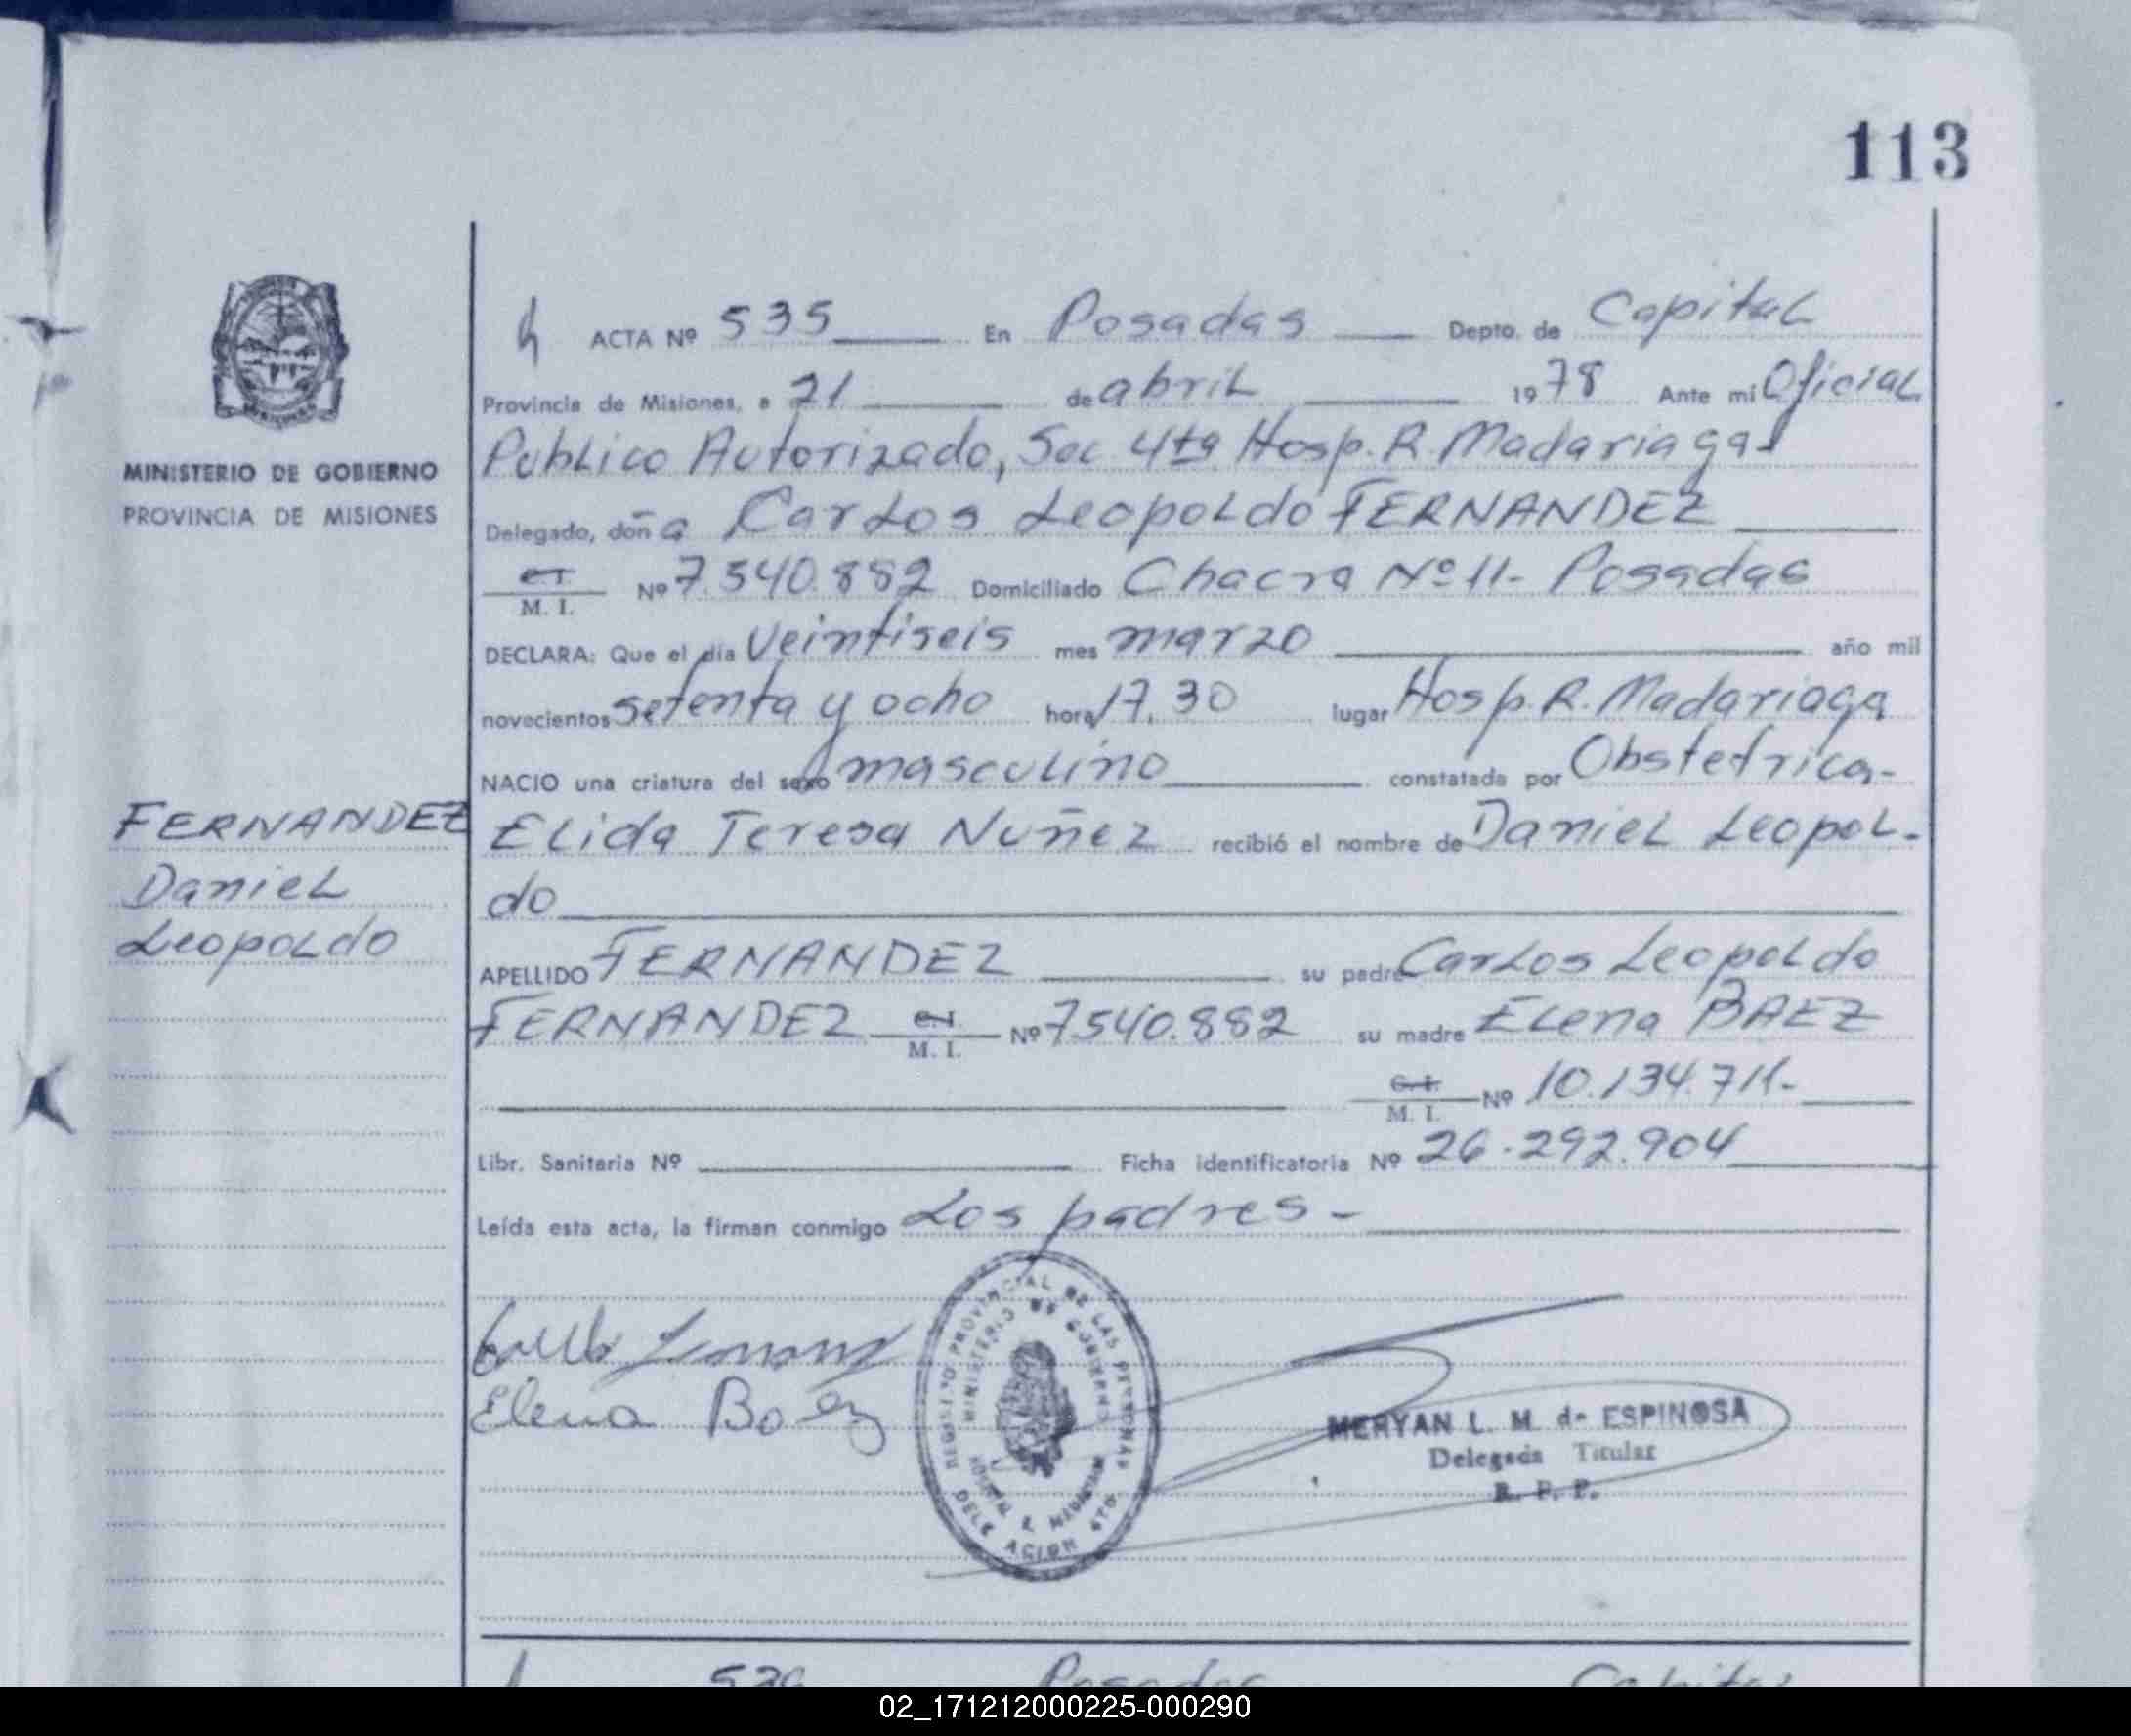 113
ACTA Nº 535 En Posadas Depto. de Capital
Provincia de Misiones, a 21 de abril 1978 Ante mi Oficial
Publico Autorizado, Sec 4ta Hosp. R. Madariaga
MINISTERIO DE GOBIERNO
PROVINCIA DE MISIONES
Delegado, doña Carlos Leopoldo FERNANDEZ
C.I. M. I. Nº 7.540.882 Domiciliado Chacra Nº 11- Posadas
DECLARA: Que el día Veintiseis mes marzo año mil
novecientos setenta y ocho hora 17,30 lugar Hosp. R. Madariaga
NACIO una criatura del sexo masculino constatada por Obstetrica-
FERNANDEZ
Daniel
Leopoldo
Elida Teresa Nuñez recibió el nombre de Daniel Leopol-
do
APELLIDO FERNANDEZ su padre Carlos Leopoldo
FERNANDEZ C.I. M. I. Nº 7540.882 su madre Elena BAEZ
C.I. M. I. Nº 10.134.711-
Libr. Sanitaria Nº Ficha identificatoria Nº 26.292.904
Leída esta acta, la firman conmigo Los padres-
Elena Baez
REGISTRO PROVINCIAL DE LAS PERSONAS
MINISTERIO DE GOBIERNO
MERYAN L. M. de ESPINOSA
Delegada Titular
R. P. P.
Posadas Capital
02_171212000225-000290